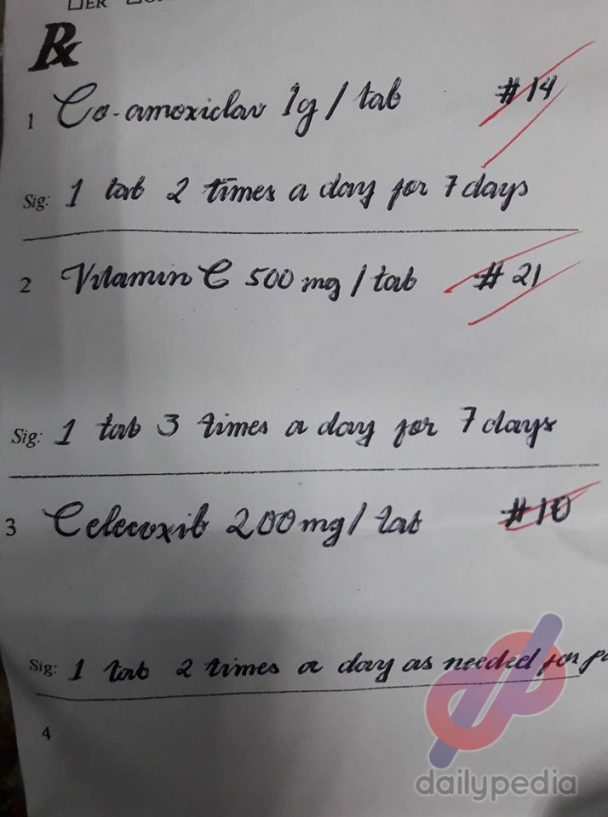 ☐ER
Rx
1 Co-amoxiclav 1g / tab #14
Sig: 1 tab 2 times a day for 7 days
2 Vitamin C 500 mg / tab #21
Sig: 1 tab 3 times a day for 7 days
3 Celecoxib 200mg / tab #10
Sig: 1 tab 2 times a day as needed for
4
dailypedia